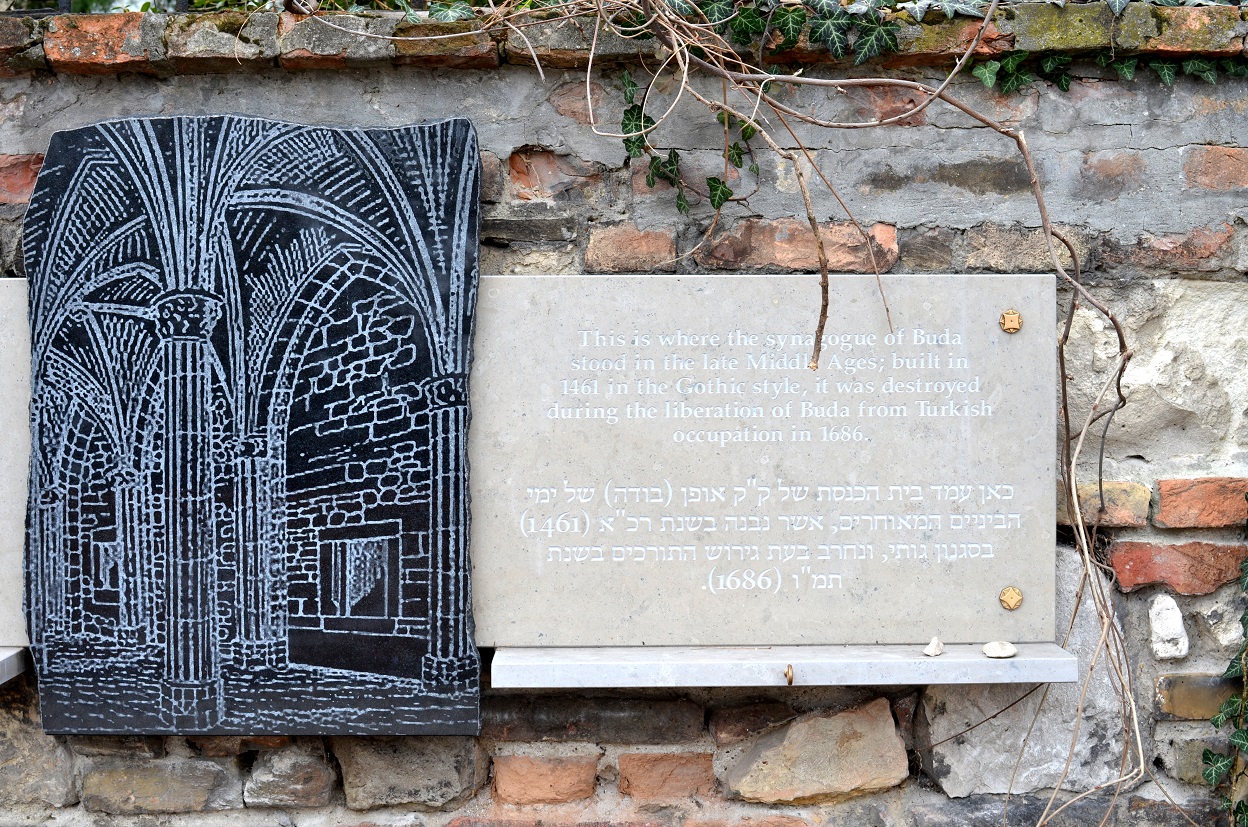 This is where the synagogue of Buda
stood in the late Middle Ages; built in
1461 in the Gothic style, it was destroyed
during the liberation of Buda from Turkish
occupation in 1686.
כאן עמד בית הכנסת של ק"ק אופן (בודה) של ימי
הביניים המאוחרים, אשר נבנה בשנת רכ"א (1461)
בסגנון גותי, ונחרב בעת גירוש התורכים בשנת
תמ"ו (1686).